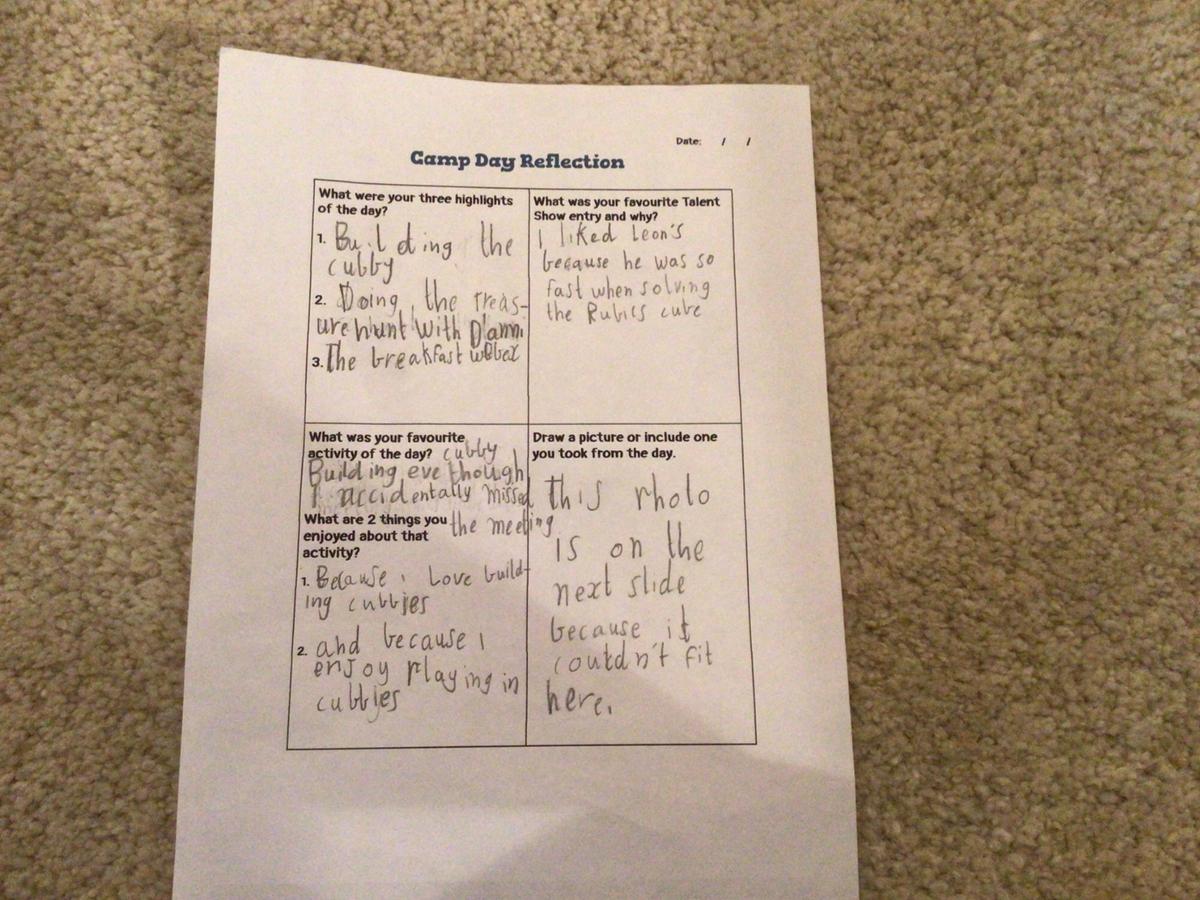 Date: / /
Camp Day Reflection
What were your three highlights
of the day?
1. Building the
cubby
2. Doing the treas-
ure hunt with Danni
3. The breakfast
What was your favourite Talent
Show entry and why?
I liked Leon's
because he was so
fast when solving
the Rubics cube
What was your favourite
activity of the day? cubby
Building eve though
I accidentally missed
the meeting
What are 2 things you
enjoyed about that
activity?
1. Because i Love build-
ing cubbies
2. and because i
enjoy playing in
cubbies
Draw a picture or include one
you took from the day.
this photo
is on the
next slide
because it
couldn't fit
here.